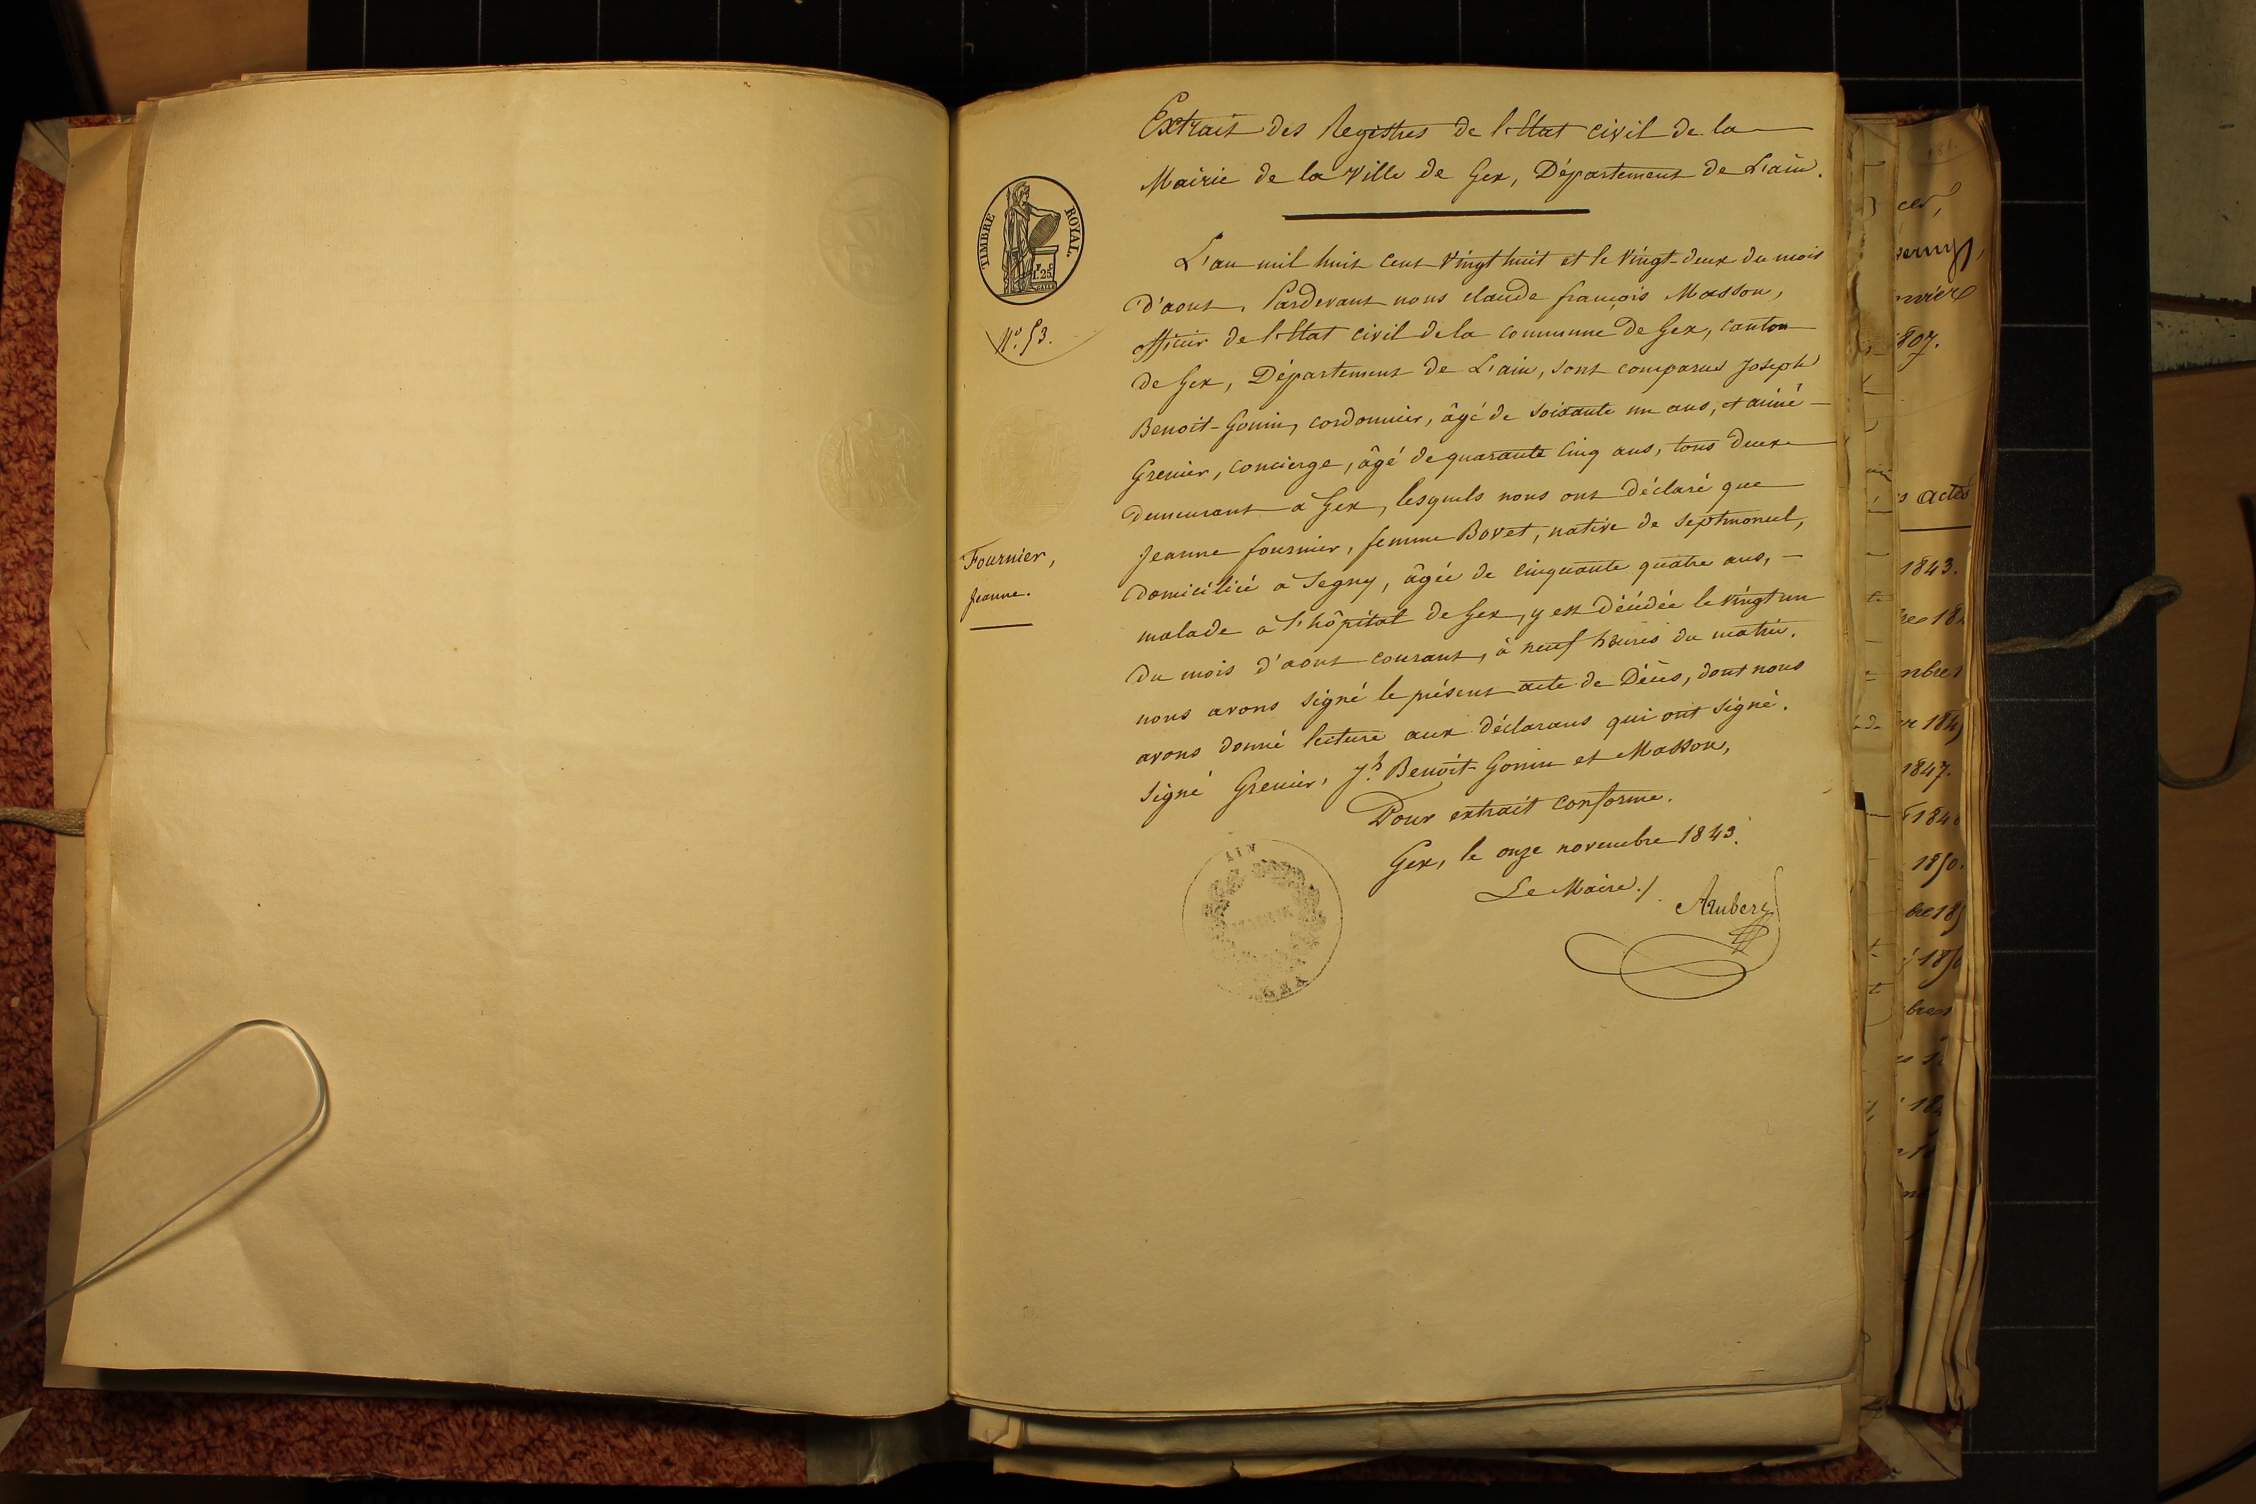 Extrait des Registres de l'Etat civil de la
Mairie de la Ville de Gex, Département de L'ain.
TIMBRE ROYAL.
1.25
N.º 53.
L'an mil huit cent vingt huit et le vingt-deux du mois
d'aout, Pardevant nous claude françois Masson,
officier de l'Etat civil de la commune de Gex, canton
de Gex, Département de L'ain, sont comparus Joseph
Benoit-Gonin, cordonnier, âgé de soixante un ans, et aimé
Grenier, concierge, âgé de quarante cinq ans, tous deux
demeurant à Gex, lesquels nous ont déclaré que
Jeanne fournier, femme Bovet, native de septmoncel,
domiciliée à Segny, âgée de cinquante quatre ans,
malade à l'hôpital de Gex, y est décédée le vingt un
du mois d'aout courant, à neuf heures du matin.
nous avons signé le présent acte de Décès, dont nous
avons donné lecture aux déclarans qui ont signé.
signé Grenier, J.h Benoit-Gonin et Masson,
Fournier,
Jeanne.
Pour extrait conforme.
Gex, le onze novembre 1843.
Le Maire./.
AIN
MAIRIE
GEX
1807.
actes
1843.
1847.
1850.